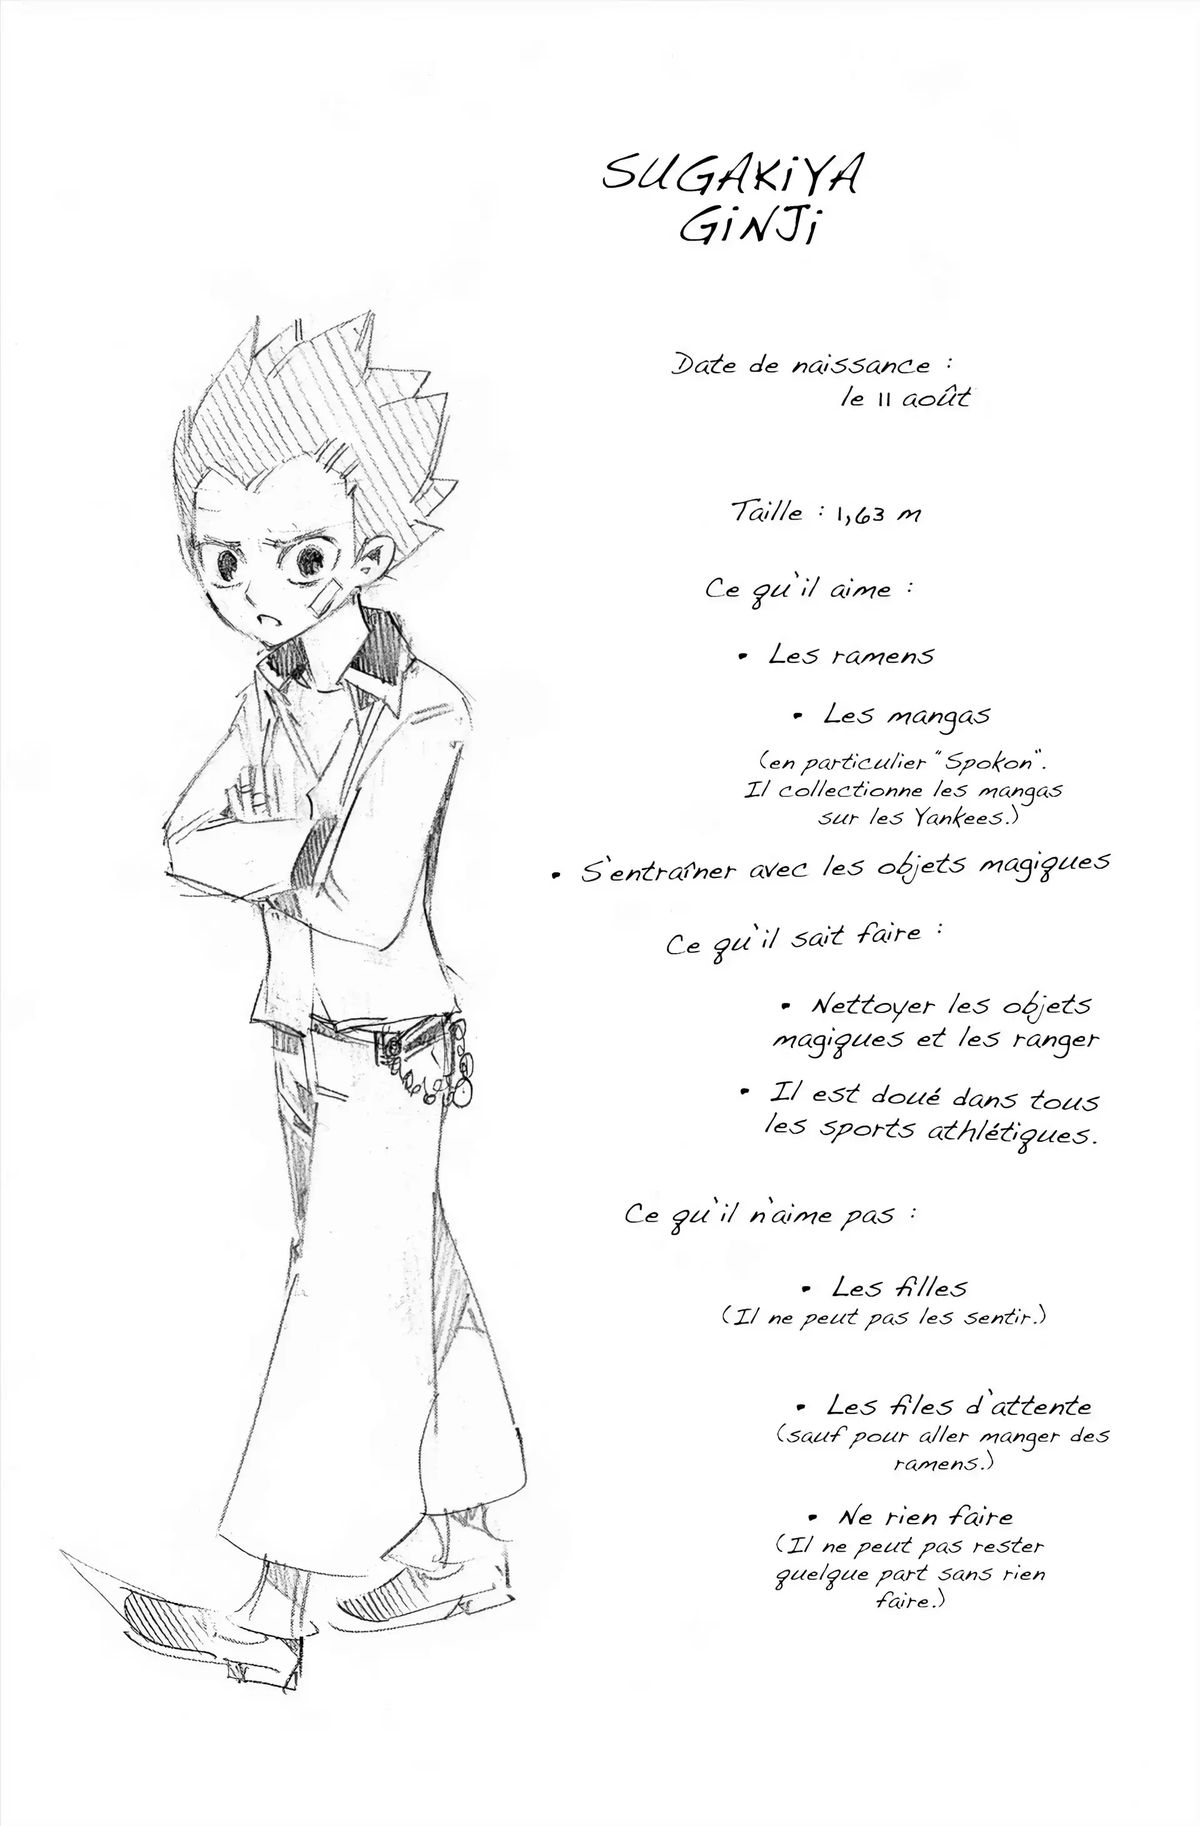 SUGAKiYA
GiNJi
Date de naissance :
le 11 août
Taille : 1,63 m
Ce qu'il aime :
• Les ramens
• Les mangas
(en particulier "Spokon".
Il collectionne les mangas
sur les Yankees.)
• S'entraîner avec les objets magiques
Ce qu'il sait faire :
• Nettoyer les objets
magiques et les ranger
• Il est doué dans tous
les sports athlétiques.
Ce qu'il n'aime pas :
• Les filles
(Il ne peut pas les sentir.)
• Les files d'attente
(sauf pour aller manger des
ramens.)
• Ne rien faire
(Il ne peut pas rester
quelque part sans rien
faire.)